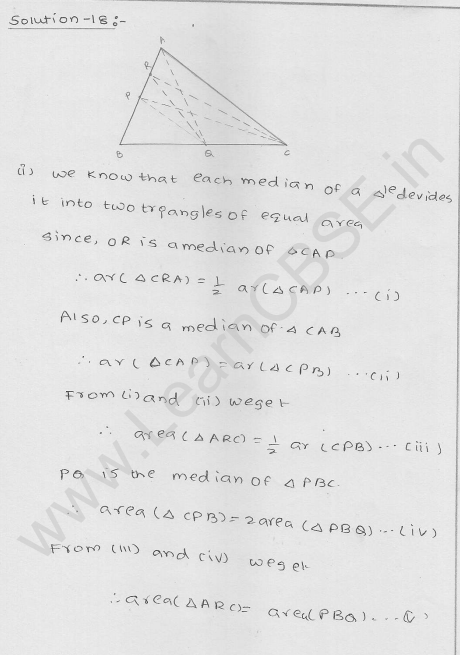 Solution-18:-
A
R
P
B
Q
C
(i) we know that each median of a Δle devides
it into two trpangles of equal area
since, OR is a median of ΔCAP
∴ ar(ΔCRA) = 1/2 ar(ΔCAP) ...(i)
Also, CP is a median of ΔCAB
∴ ar(ΔCAP) = ar(ΔCPB) ...(ii)
From (i) and (ii) weget
∴ area(ΔARC) = 1/2 ar(CPB)...(iii)
PQ is the median of ΔPBC.
∴ area(ΔCPB) = 2area(ΔPBQ)...(iv)
From (iii) and (iv) weget
∴ area(ΔARC) = area(PBQ)...(v)
www.LearnCBSE.in